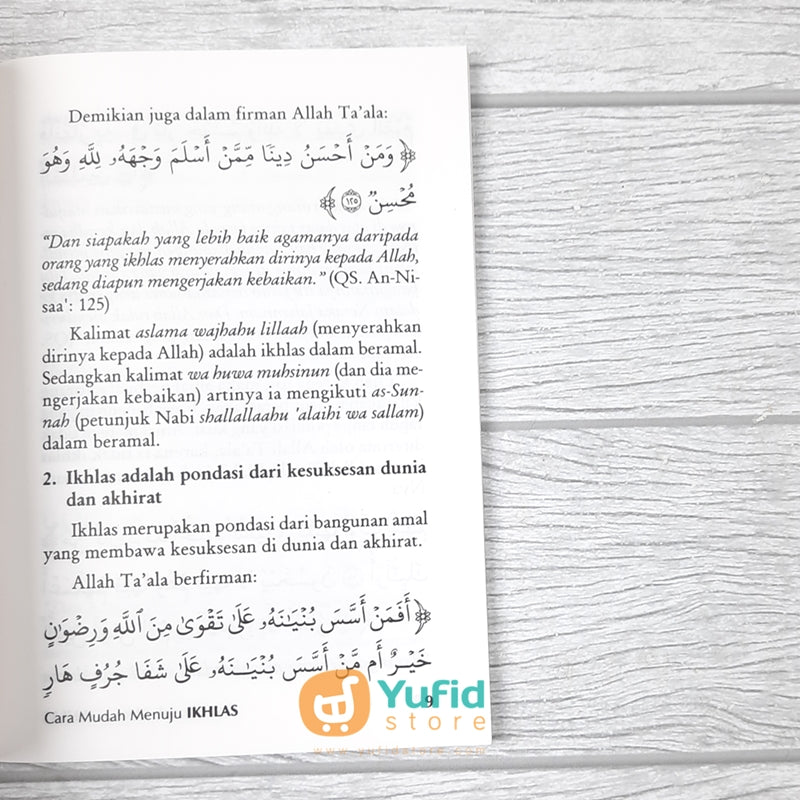 Demikian juga dalam firman Allah Ta'ala:
﴿ وَمَنْ أَحْسَنُ دِينًا مِّمَّنْ أَسْلَمَ وَجْهَهُۥ لِلَّهِ وَهُوَ
مُحْسِنٌ ١٢٥ ﴾
"Dan siapakah yang lebih baik agamanya daripada
orang yang ikhlas menyerahkan dirinya kepada Allah,
sedang diapun mengerjakan kebaikan." (QS. An-Ni-
saa': 125)
Kalimat aslama wajhahu lillaah (menyerahkan
dirinya kepada Allah) adalah ikhlas dalam beramal.
Sedangkan kalimat wa huwa muhsinun (dan dia me-
ngerjakan kebaikan) artinya ia mengikuti as-Sun-
nah (petunjuk Nabi shallallaahu 'alaihi wa sallam)
dalam beramal.
2. Ikhlas adalah pondasi dari kesuksesan dunia
dan akhirat
Ikhlas merupakan pondasi dari bangunan amal
yang membawa kesuksesan di dunia dan akhirat.
Allah Ta'ala berfirman:
﴿ أَفَمَنْ أَسَّسَ بُنْيَـٰنَهُۥ عَلَىٰ تَقْوَىٰ مِنَ ٱللَّهِ وَرِضْوَٰنٍ
خَيْرٌ أَم مَّنْ أَسَّسَ بُنْيَـٰنَهُۥ عَلَىٰ شَفَا جُرُفٍ هَارٍ
Cara Mudah Menuju IKHLAS
9
Yufid
store
www.yufidstore.com